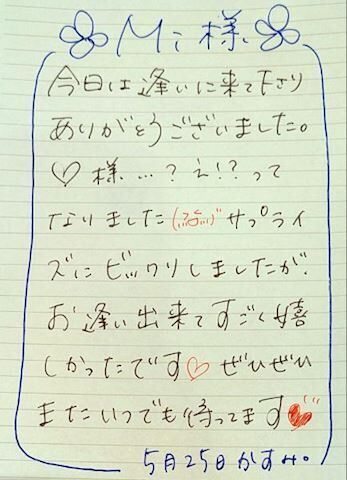 Mi様
今日は逢いに来て下さり
ありがとうございました。
♡様…？え!?って
なりました(笑)サプライ
ズにビックリしましたが、
お逢い出来てすごく嬉
しかったです♡ぜひぜひ
またいつでも待ってます♥
5月25日かすみ。